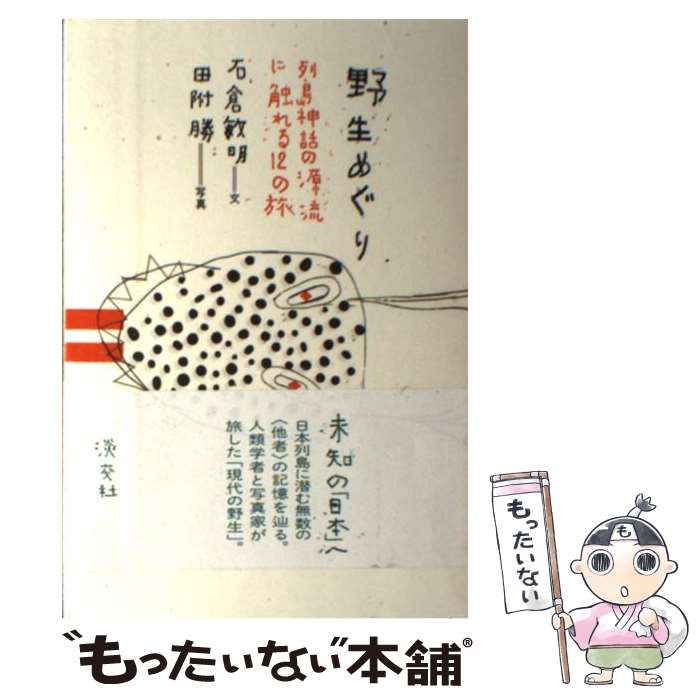 野生めぐり
列島神話の源流
に触れる12の旅
石倉敏明＝文
田附勝＝写真
淡交社
未知の「日本」へ
日本列島に潜む無数の
〈他者〉の記憶を辿る。
人類学者と写真家が
旅した「現代の野生」。
もったいない
も
"もったいない本舗®